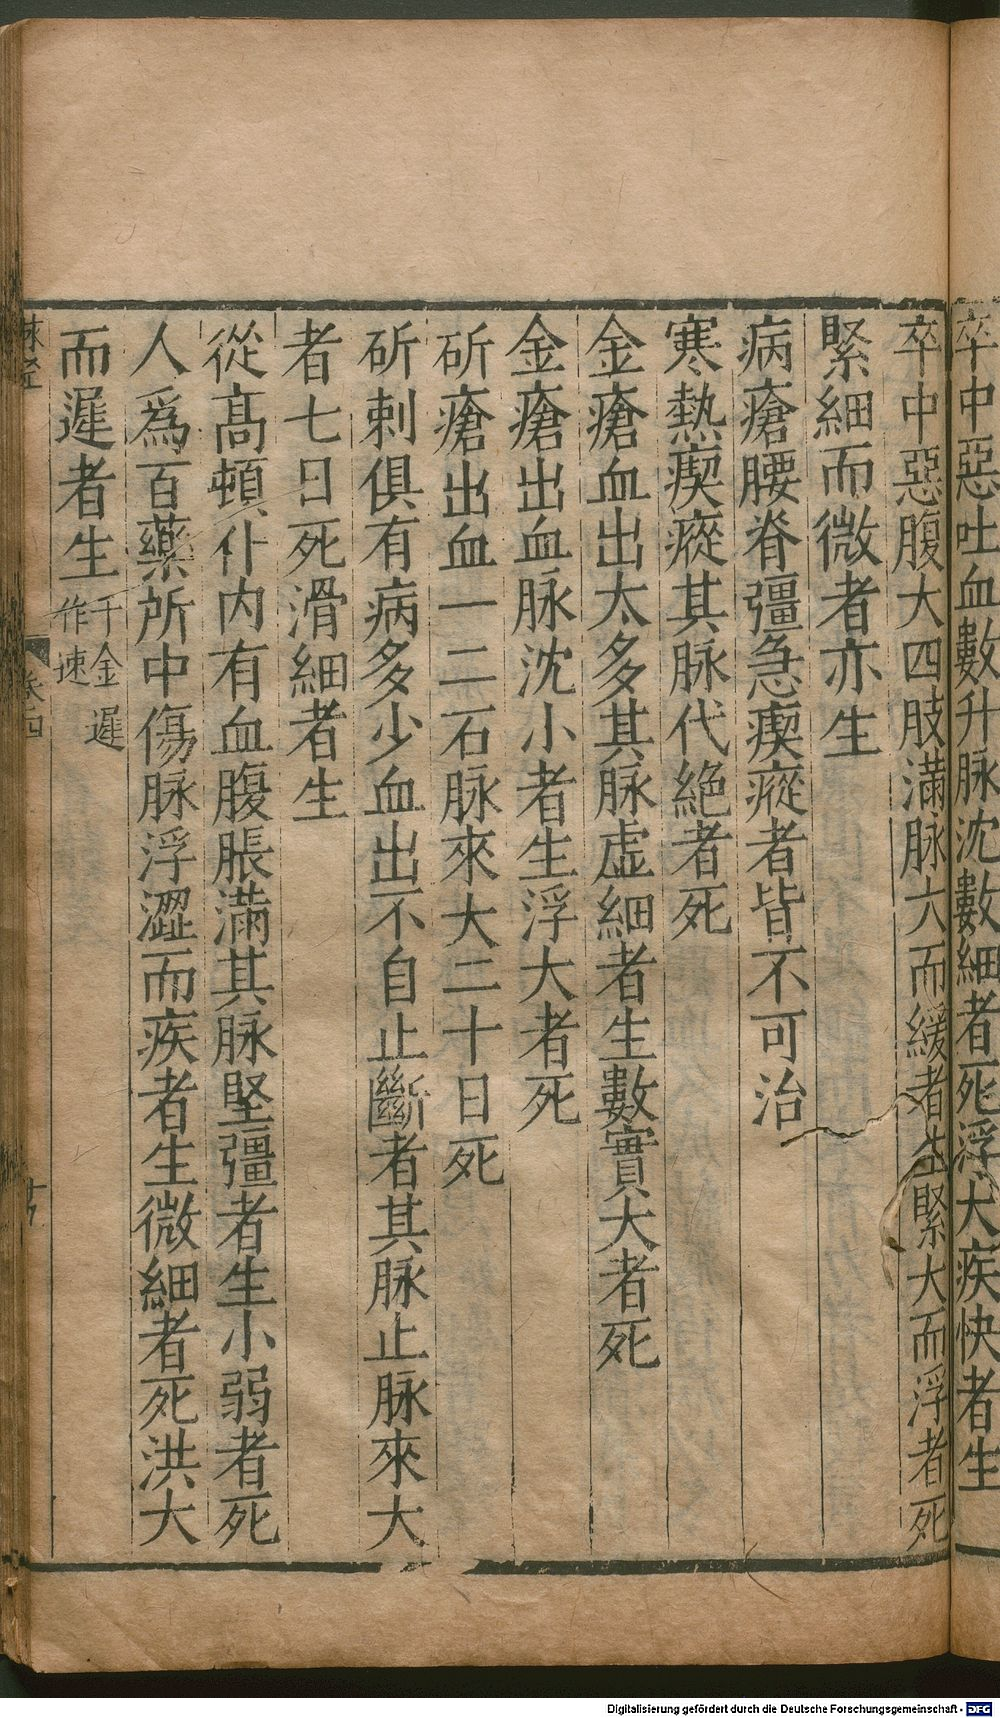 卒中惡吐血數升脉沈數細者死浮大疾快者生
卒中惡腹大四肢滿脉大而緩者生緊大而浮者死
緊細而微者亦生
病瘡腰脊彊急瘈瘲者皆不可治
寒熱瘈瘲其脉代絶者死
金瘡血出太多其脉虛細者生數實大者死
金瘡出血脉沈小者生浮大者死
斫瘡出血一二石脉來大二十日死
斫刺俱有病多少血出不自止斷者其脉止脉來大
者七日死滑細者生
從髙頓仆內有血腹脹滿其脉堅彊者生小弱者死
人爲百藥所中傷脉浮澀而疾者生微細者死洪大
而遲者生千金遲作速
脉經 卷四
Digitalisierung gefördert durch die Deutsche Forschungsgemeinschaft - DFG